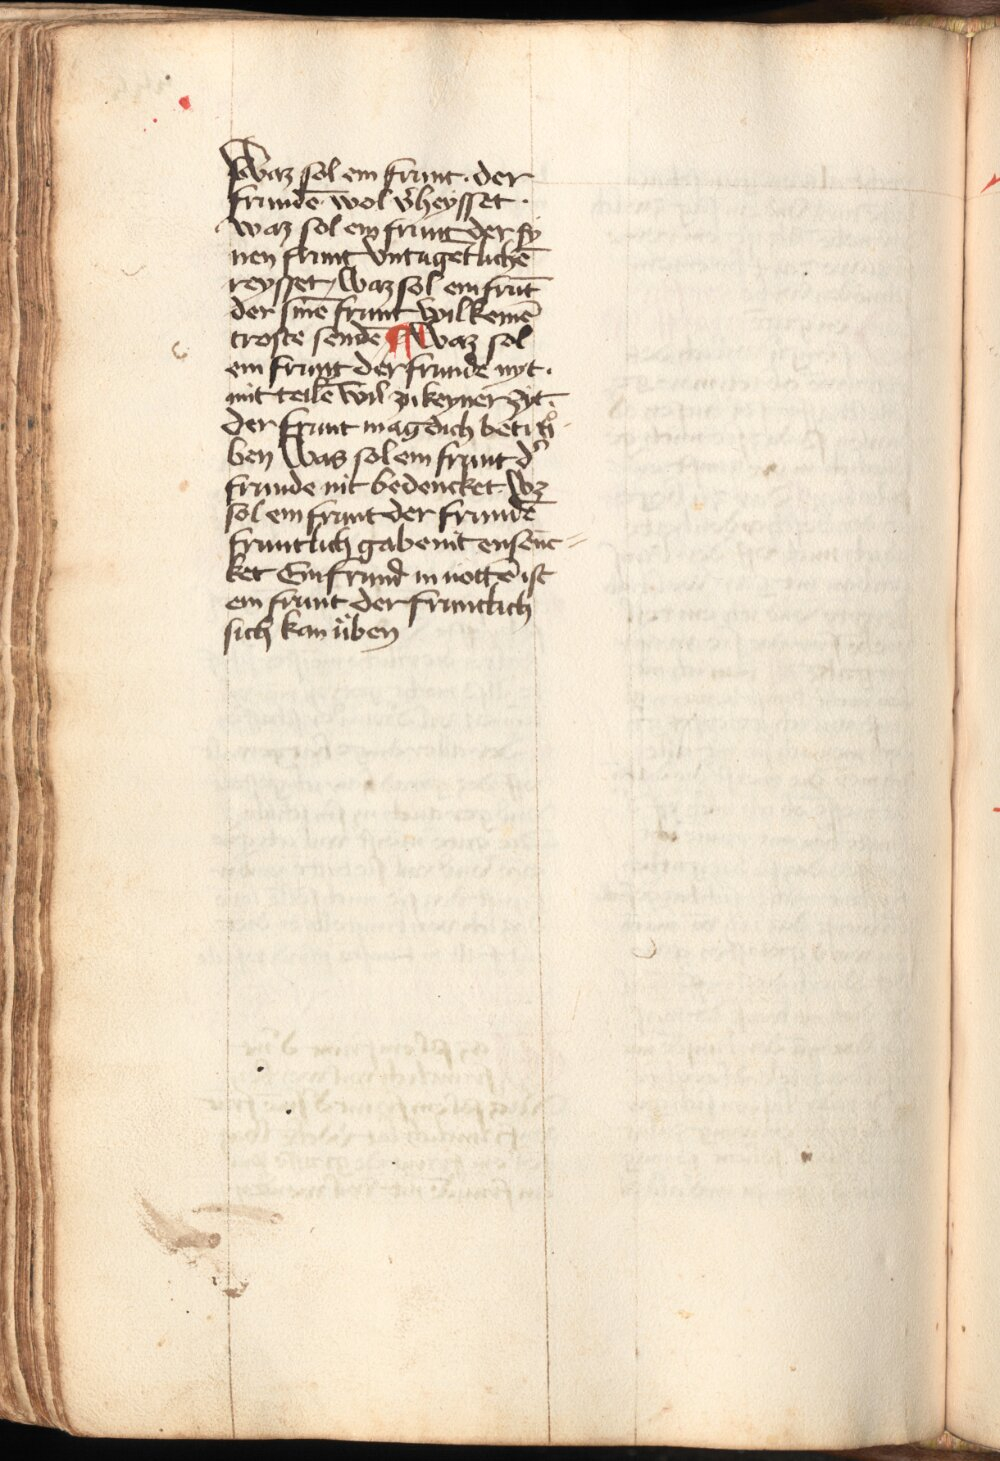 Waz sol ein frunt · der
frundē wol v̓heysset ·
waz sol ein frunt der sy
nen frunt vntugetlichē
reysset / Waz sol ein frūt
der sinē frunt wil keinē
troste sendē ¶ Waz sol
ein frunt der frunde nyt ·
mit teilē wil zu keyner zyt ·
der frunt mag dich
ben Was sol ein frunt d̓
frunde nit bedencket · Wz
sol ein frunt der frundē
fruntlich gabe nit ensenc=
ket Ein frund in nottē ist
ein frunt der fruntlich
sich kan üben